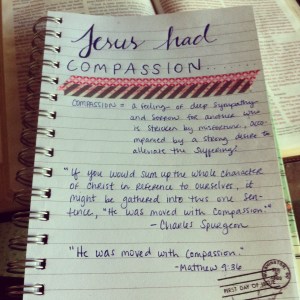 Jesus had
COMPASSION
COMPASSION = a feeling of deep sympathy
and sorrow for another who
is stricken by misfortune, acco
mpanied by a strong desire to
alleviate the suffering!
"If you would sum up the whole character
of Christ in reference to ourselves, it
might be gathered into this one sen-
tence, "He was moved with compassion."
- Charles Spurgeon
"He was moved with compassion."
- Matthew 9:36
FIRST DAY OF